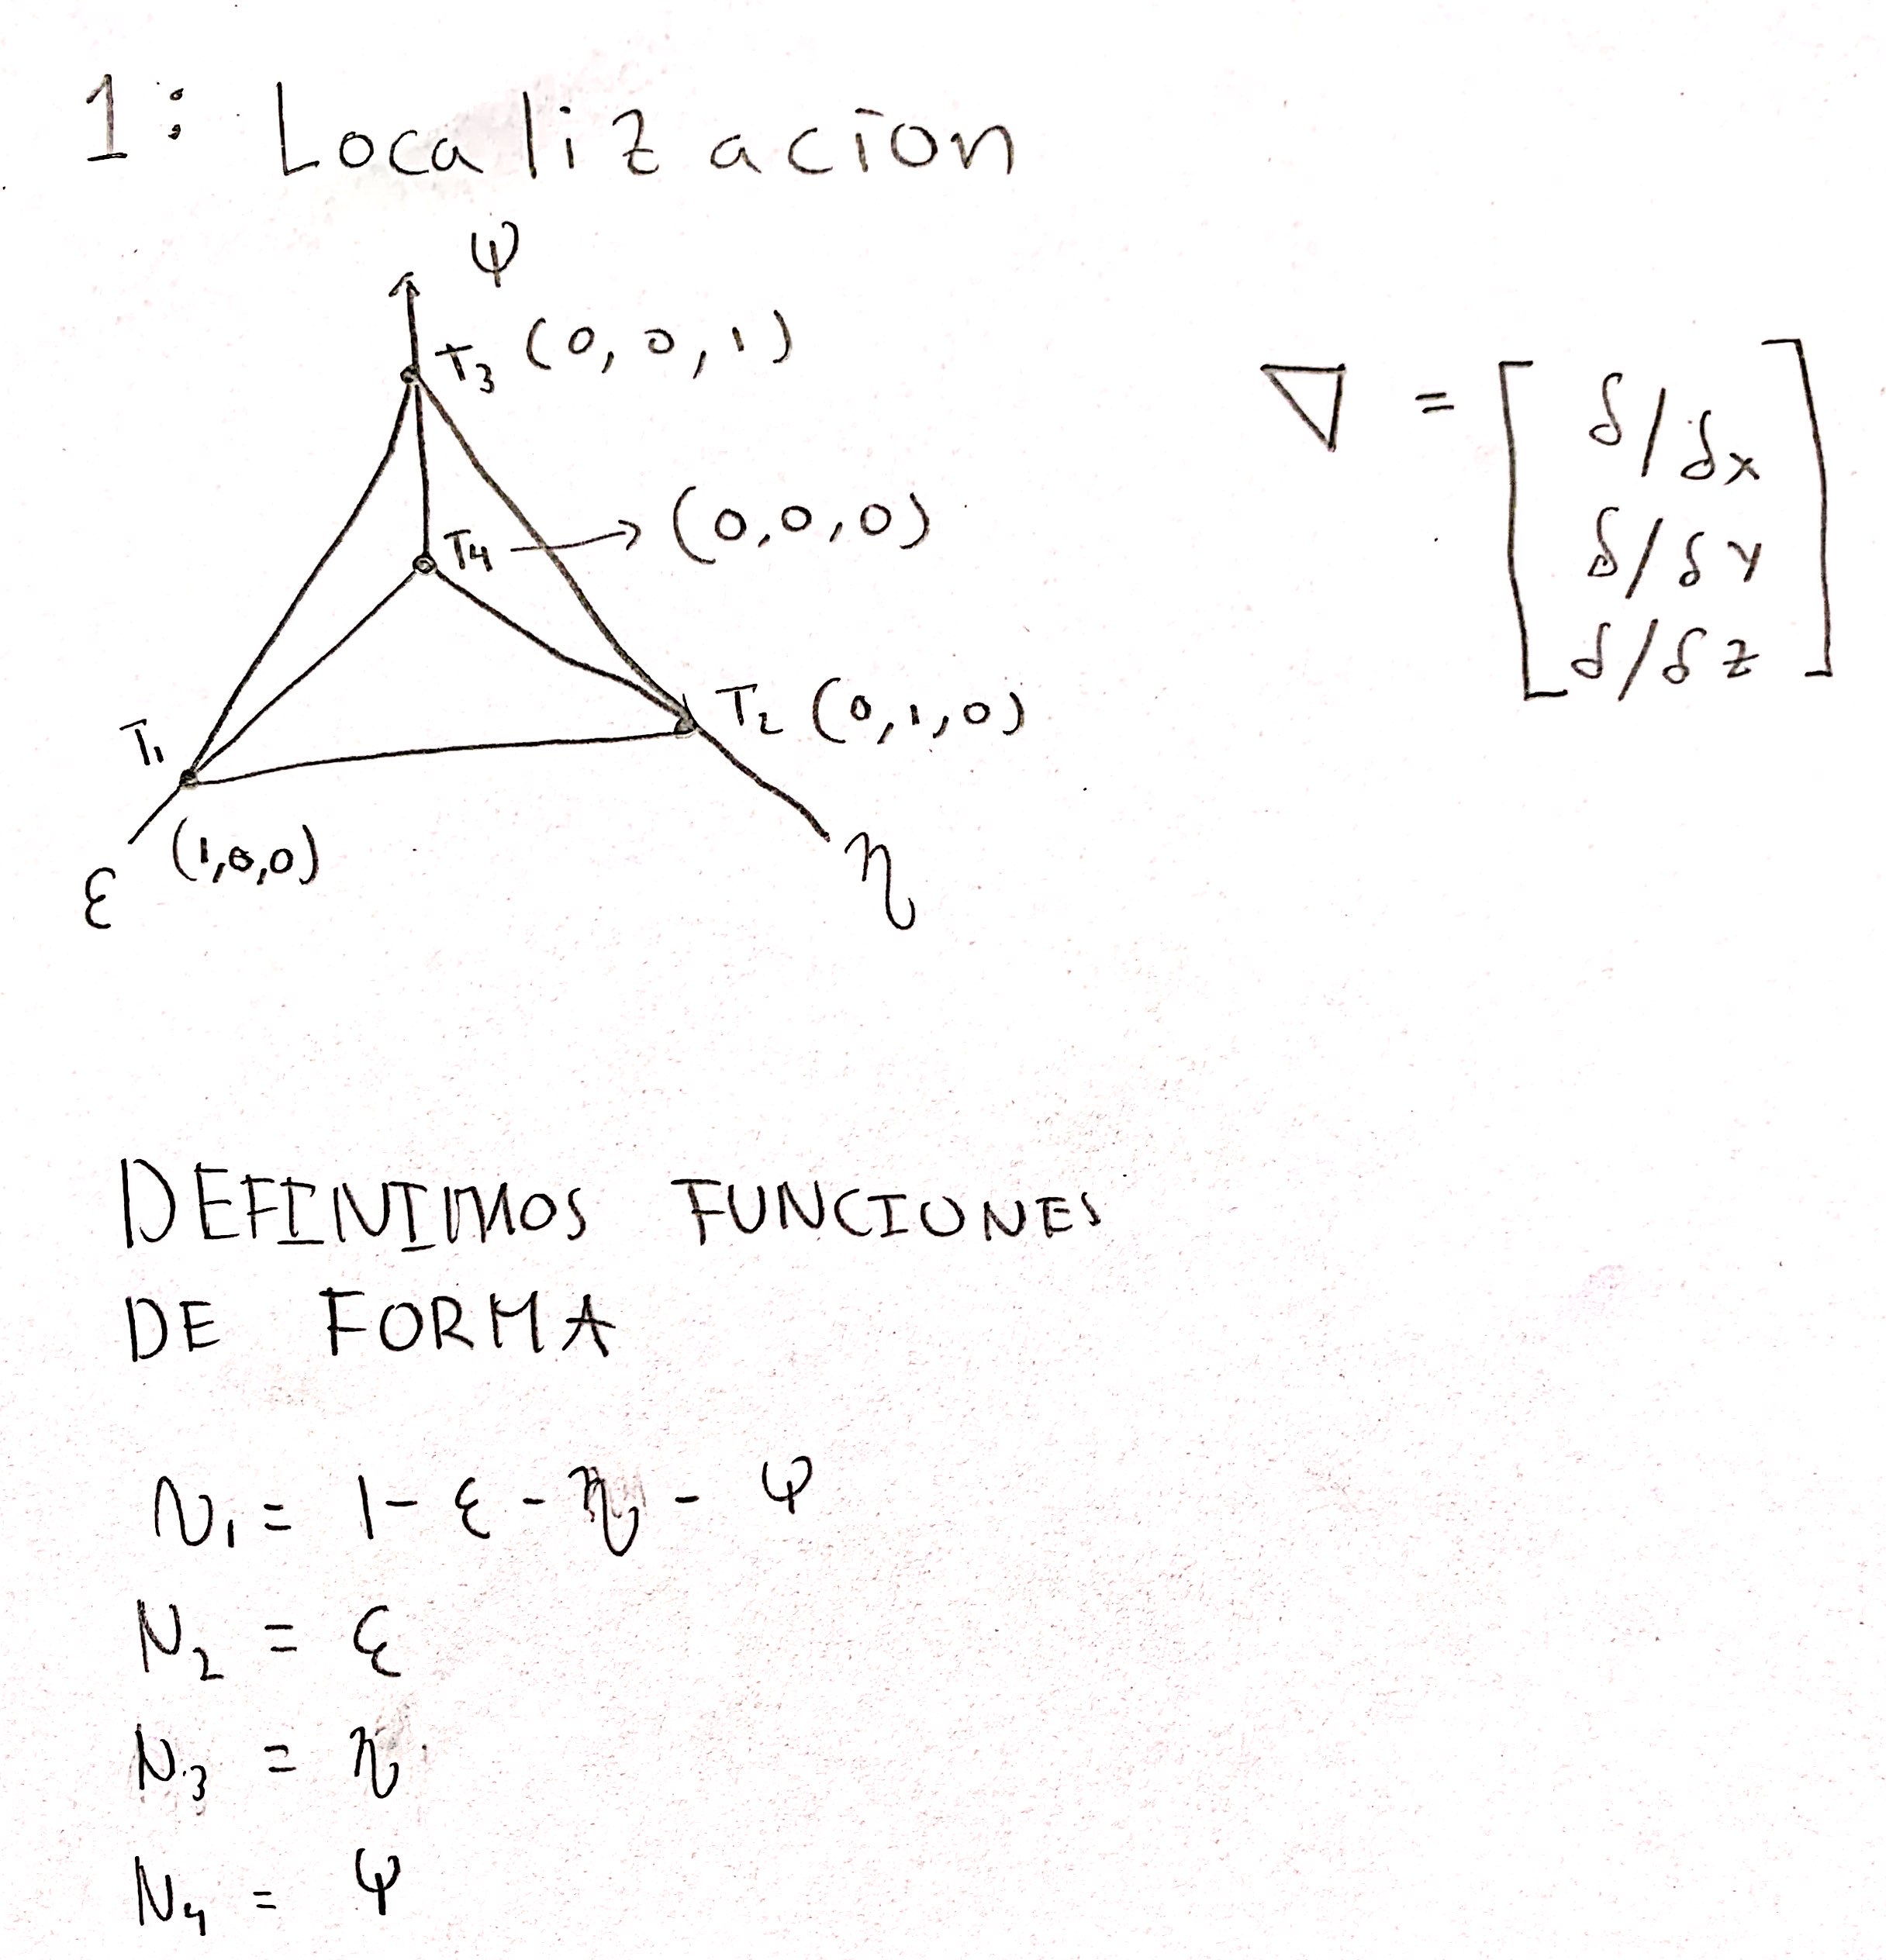 1: Localizacion
ψ
T3 (0,0,1)
T4 → (0,0,0)
T1
T2 (0,1,0)
(1,0,0)
ε
η
∇ = [ δ/δx
δ/δy
δ/δz ]
DEFINIMOS FUNCIONES
DE FORMA
N1 = 1 - ε - η - ψ
N2 = ε
N3 = η
N4 = ψ